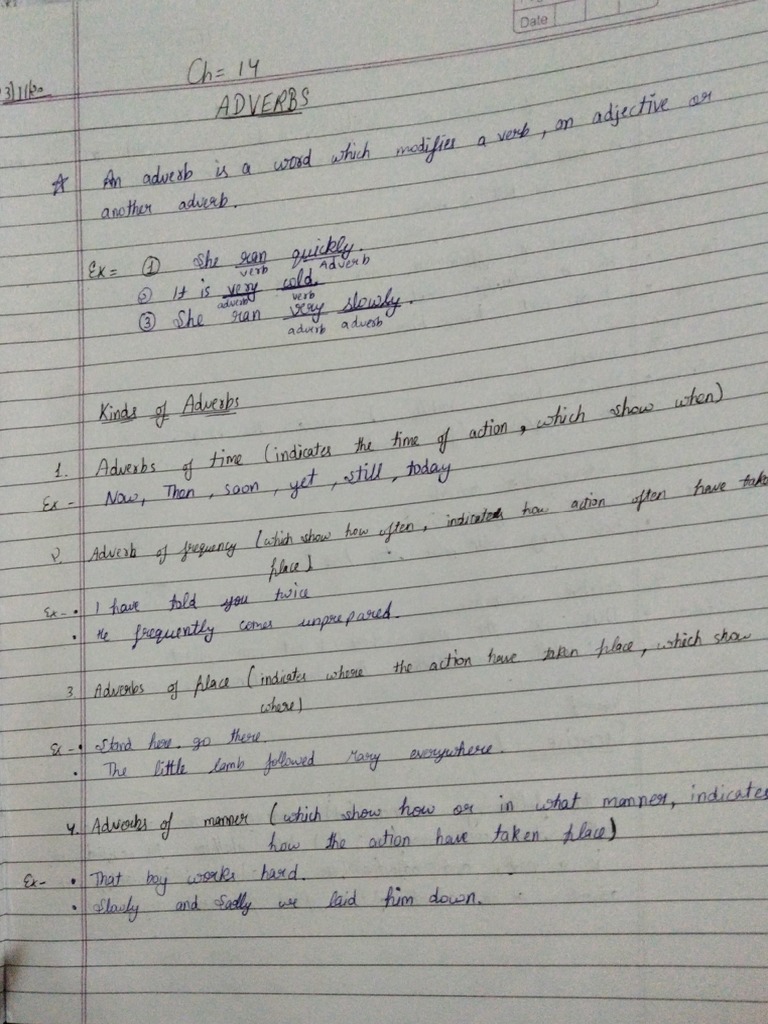 Date
Ch = 14
ADVERBS
☆ An adverb is a word which modifies a verb, an adjective or
another adverb.
Ex = ① She ran quickly.
verb Adverb
② It is very cold.
adverb verb
③ She ran very slowly.
adverb adverb
Kinds of Adverbs
1. Adverbs of time (indicates the time of action, which show when)
Ex - Now, Then, soon, yet, still, today
2. Adverb of frequency (which show how often, indicates how action often have take
place)
Ex - • I have told you twice
• He frequently comes unprepared.
3 Adverbs of place (indicates where the action have taken place, which show
where)
Ex - • Stand here. go there.
• The little lamb followed Mary everywhere.
4. Adverbs of manner (which show how or in what manner, indicates
how the action have taken place)
Ex - • That boy works hard.
• Slowly and Sadly we laid him down.